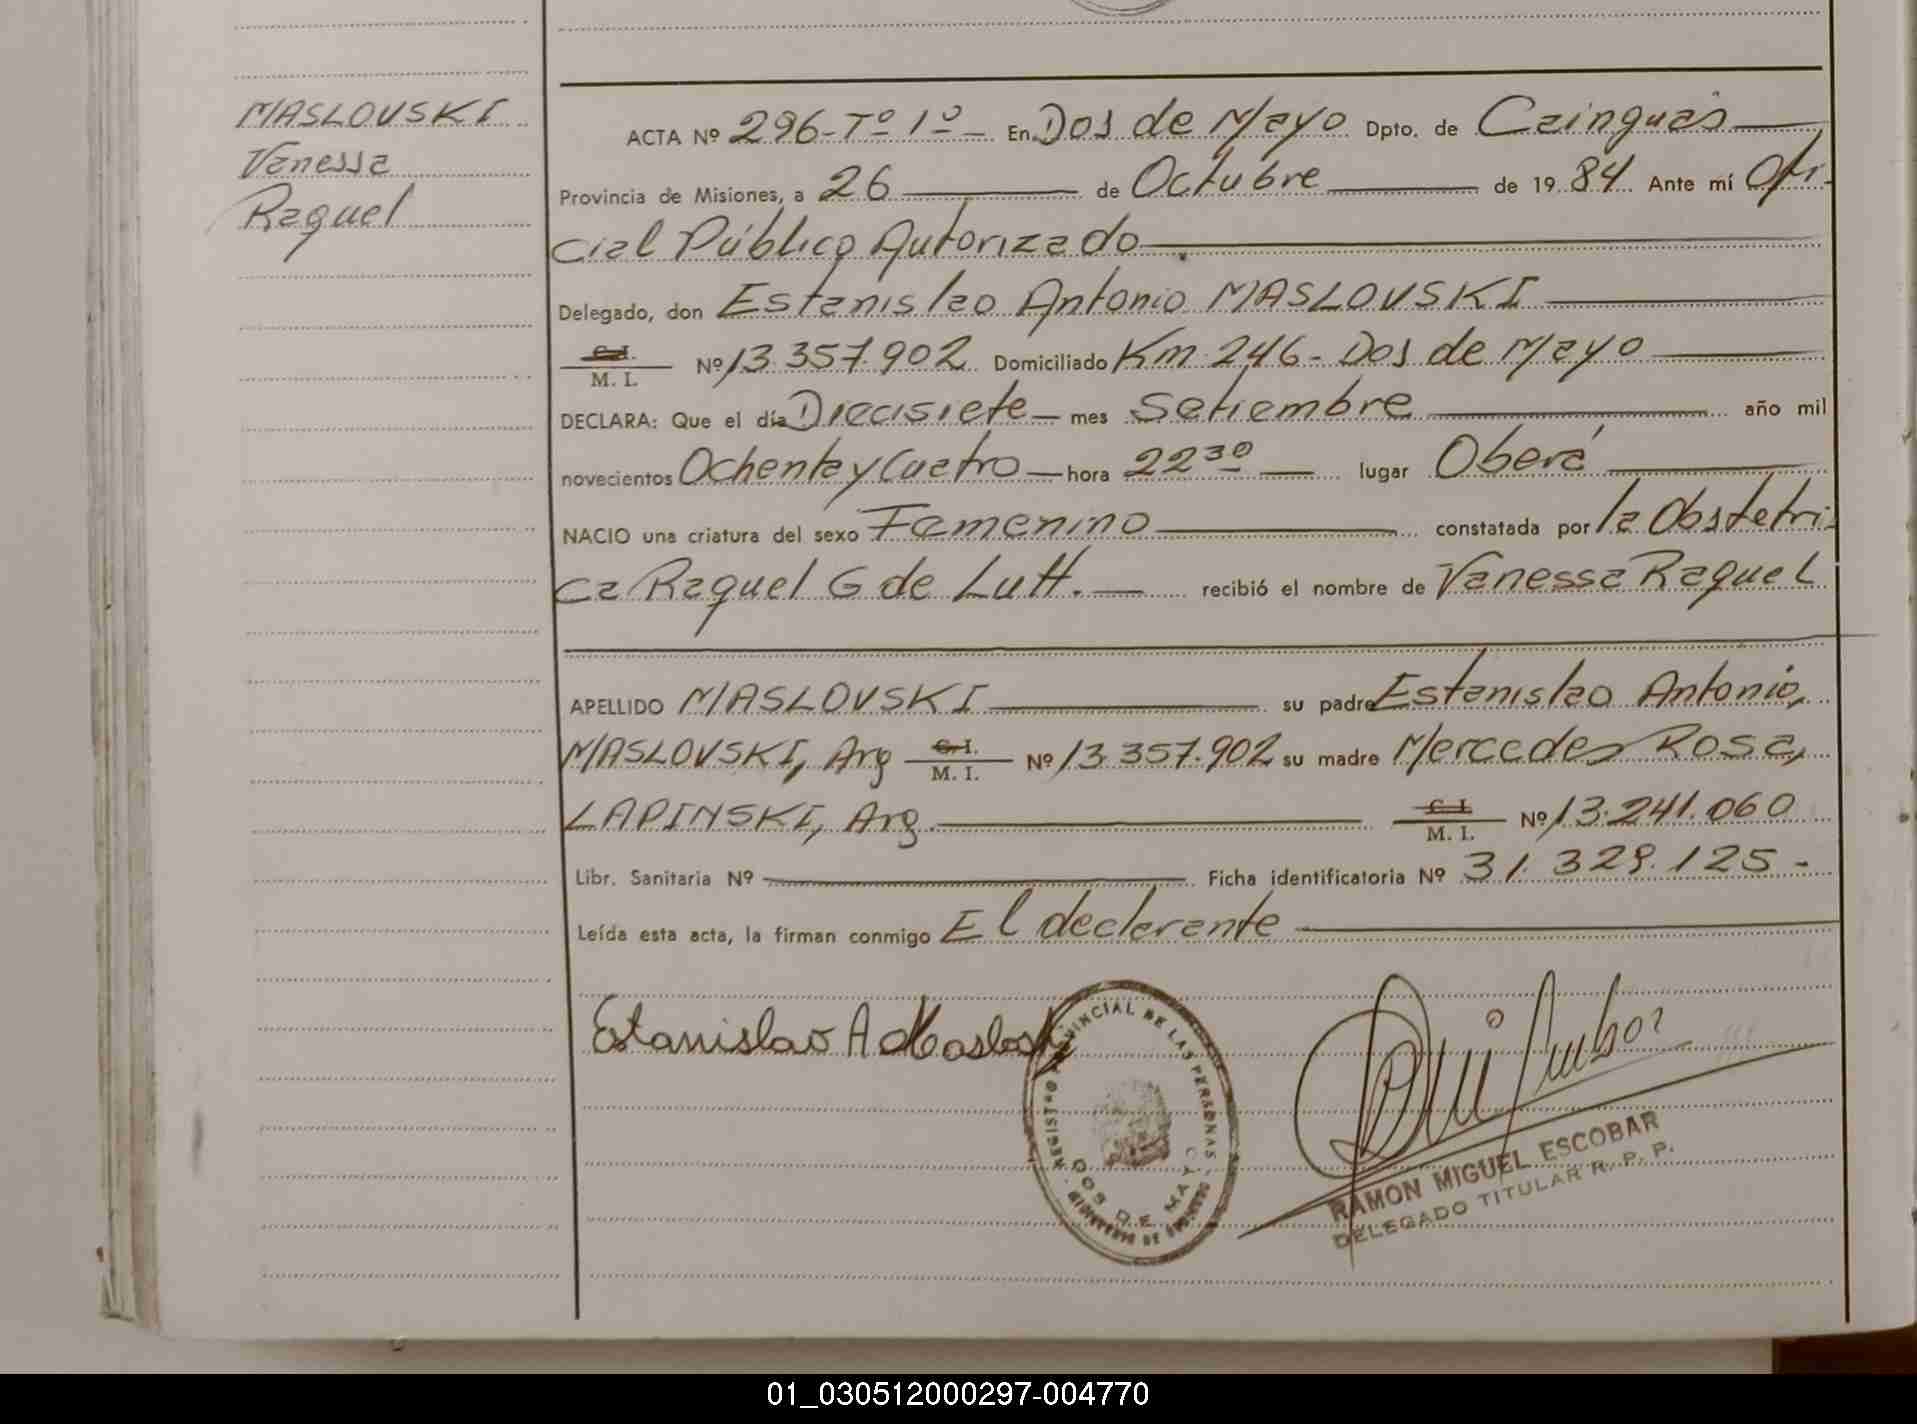 MASLOVSKI
Vanessa
Raquel
ACTA Nº 296-Tº 1º- En Dos de Mayo Dpto. de Cainguás
Provincia de Misiones, a 26 de Octubre de 1984. Ante mí Ofi-
cial Público Autorizado.
Delegado, don Estanislao Antonio MASLOVSKI
C.I. M. I. Nº 13.357.902 Domiciliado Km. 246- Dos de Mayo
DECLARA: Que el día Diecisiete mes Setiembre año mil
novecientos Ochenta y Cuatro hora 22³⁰ lugar Oberá
NACIO una criatura del sexo Femenino constatada por la Obstetri-
ca Raquel G de Lutt. recibió el nombre de Vanessa Raquel
APELLIDO MASLOVSKI su padre Estanislao Antonio,
MASLOVSKI, Arg C.I. M. I. Nº 13.357.902 su madre Mercedes Rosa,
LAPINSKI, Arg. C.I. M. I. Nº 13.241.060
Libr. Sanitaria Nº Ficha identificatoria Nº 31.329.125-
Leída esta acta, la firman conmigo El declarante
Estanislao A Maslovski
REGISTRO PROVINCIAL DE LAS PERSONAS
DOS DE MAYO
RAMON MIGUEL ESCOBAR
DELEGADO TITULAR R. P. P.
01_030512000297-004770